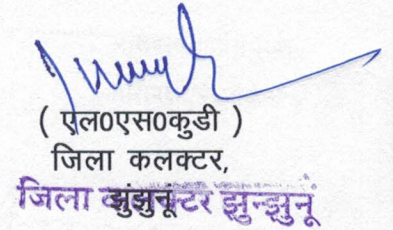 ( एल0एस0कुडी )
जिला कलक्टर,
झुंझुनूं
जिला कलक्टर झुन्झुनूं